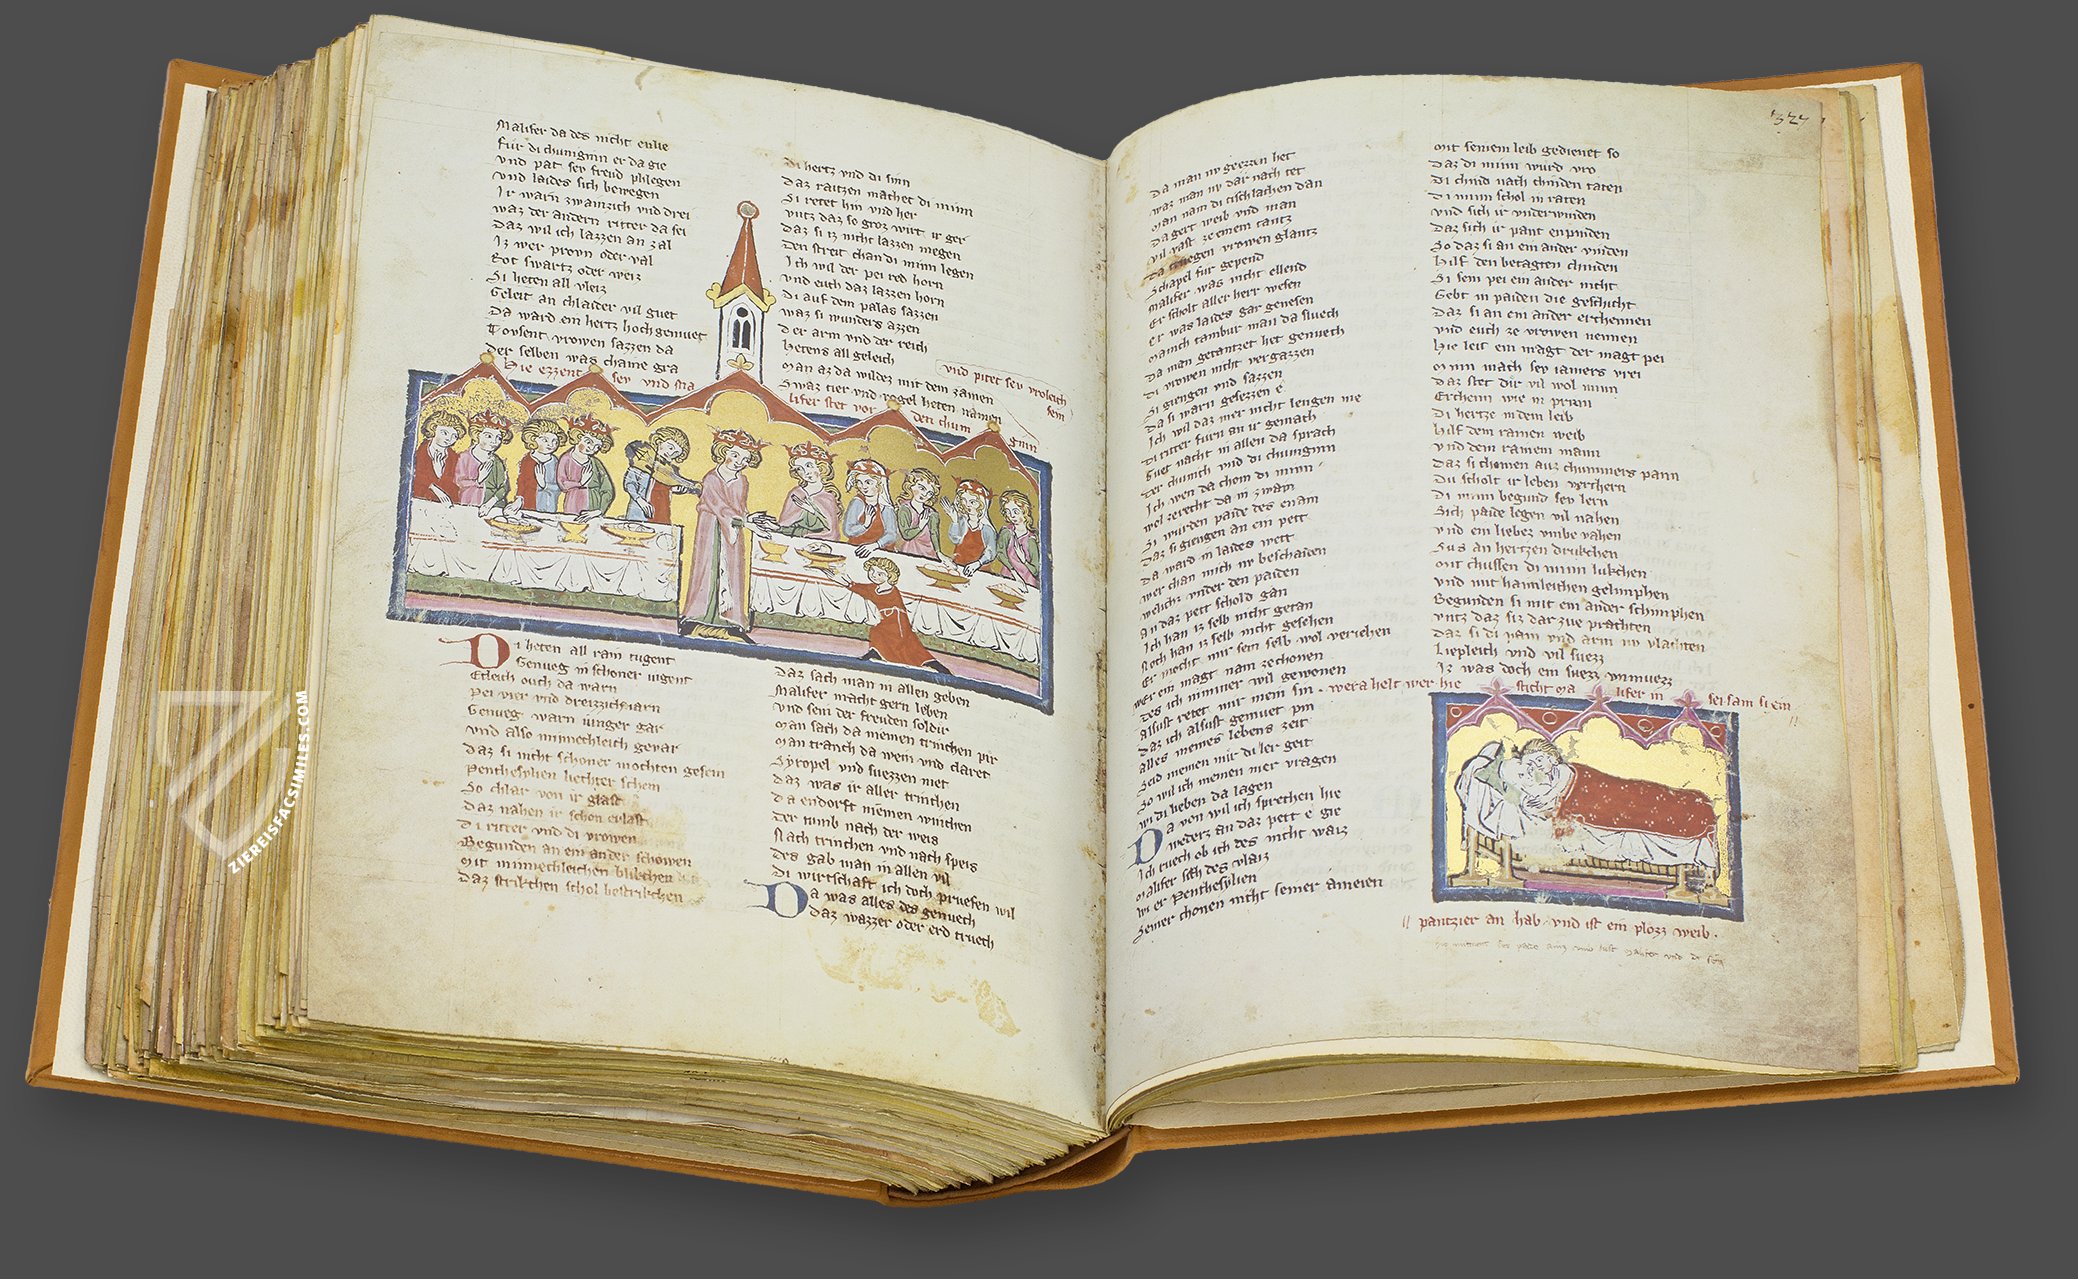 Malifer da des nicht enlie
für di chunginn er da gie
vnd pat sey freud phlegen
vnd laides sich bewegen
Ir warn zwainzich vnd drei
waz der andern ritter da sei
Daz wil ich lazzen an zal
Iz wer provn oder val
Rot swartz oder weiz
Si heten all vleiz
Geleit an chlaider vil guet
Da ward ein hertz hochgemuet
Tovsent vrowen sazzen da
Der selben was chaine gra
Hie ezzent sey vnd sta
Di hertz vnd di sinn
Daz raitzen machet di minn
Si retet hin vnd her
vntz daz so groz wirt ir ger
Daz si iz nicht lazzen megen
Den streit chan di minn legen
Ich wil der pei red horn
vnd euch daz lazzen horn
Di auf dem palas sazzen
waz si wunders azzen
Der arm vnd der reich
Hetens all geleich
Man az da wildez mit dem zamen
Swaz tier vnd vogel heten namen
lifer stet vor den chun ginn
vnd pitet sey vroleich sein
Di heten all rain tugent
Genueg in schoner iugent
Etleich ouch da warn
Pei vier vnd dreizzich iarn
Genueg warn iunger gar
vnd also minnechleich gevar
Daz si nicht schoner mochten gesein
Penthesylien liechter schein
So chlar von ir glast
Daz nahen ir schon erlast
Di ritter vnd di vrowen
Begunden an ein ander schowen
Mit minnechleichen blikchen
Daz strikchen schol bestrikchen
Daz sach man in allen geben
Malifer macht gern leben
vnd sein der freuden soldir
Man sach da niemen trinchen pir
Man tranch da wein vnd claret
Syropel vnd suezzen met
Daz was ir aller trinchen
Da endorft niemen winchen
Der tumb nach der weis
Nach trinchen vnd nach speis
Des gab man in allen vil
Di wirtschaft ich doch pruefen wil
Da was alles des genuech
Daz wazzer oder erd truech
327
Da man nv geezzen het
waz man nv dar nach tet
Man nam di tischlachen dan
Da gert weib vnd man
vil vast ze einem tantz
Da giengen vrowen glantz
Schapel für gepend
Malifer was nicht ellend
Er scholt aller herr wesen
Er was laides gar genesen
Manich tambur man da sluech
Da man getantzet het genuech
Di vrowen nicht vergazzen
Si giengen vnd sazzen
Da si warn gesezzen e
Ich wil daz mer nicht lengen me
Di ritter furn an ir gemach
Guet nacht in allen da sprach
Der chunich vnd di chunginn
Ich wen da chom di minn
wol zerecht da in zwain
Si wurden paide des enain
Daz si giengen an ein pett
Da ward in laides wett
wer chan mich nv beschaiden
welichz vnder den paiden
An daz pett schold gan
Ich han iz selb nicht getan
Noch han iz selb nicht gesehen
Er mocht mir sein selb wol veriehen
wer ein magt nam zechonen
Des ich nimmer wil gewonen
Alsust retet mir mein sin
Daz ich alsust gemuet pin
Alles meines lebens zeit
Seid niemen mir di ler geit
So wil ich niemen mer vragen
wi di lieben da lagen
Da von wil ich sprechen hie
wederz an daz pett e gie
Ich ruech ob ich des nicht waiz
Malifer sich des vlaiz
wi er Penthesylien
Seiner chonen nicht seiner ameien
Mit seinem leib gedienet so
Daz di minn wurd vro
Di chind nach chinden raten
Di minn schol in raten
vnd sich ir vnderwinden
Daz sich ir pant enpinden
So daz si an ein ander vinden
Hilf den betagten chinden
Si sein pei ein ander nicht
Gebt in paiden die geschicht
Daz si an ein ander erchennen
vnd euch ze vrowen nennen
Hie leit ein magt der magt pei
Minn mach sey iamers vrei
Daz stet dir vil wol minn
Erchenn wie in prinn
Di hertze in dem leib
Hilf dem rainen weib
vnd dem rainem mann
Daz si chomen auz chummers pann
Du scholt ir leben verchern
Di minn begund sey lern
Sich paide legen vil nahen
vnd ein liebez vmbe vahen
Sus an hertzen drukchen
Mit chussen di minn lukchen
vnd mit haimleichen gelimphen
Begunden si mit ein ander schimphen
vntz daz siz dar zue prachten
Daz si di pain vnd arm nv vlachten
Liepleich vnd vil suezz
Iz was doch ein suezz vnmuezz
wer a helt wer hie sticht ma lifer in sei sam si ein
pantzier an hab vnd ist ein plozz weib.
ZIEREISFACSIMILES.COM